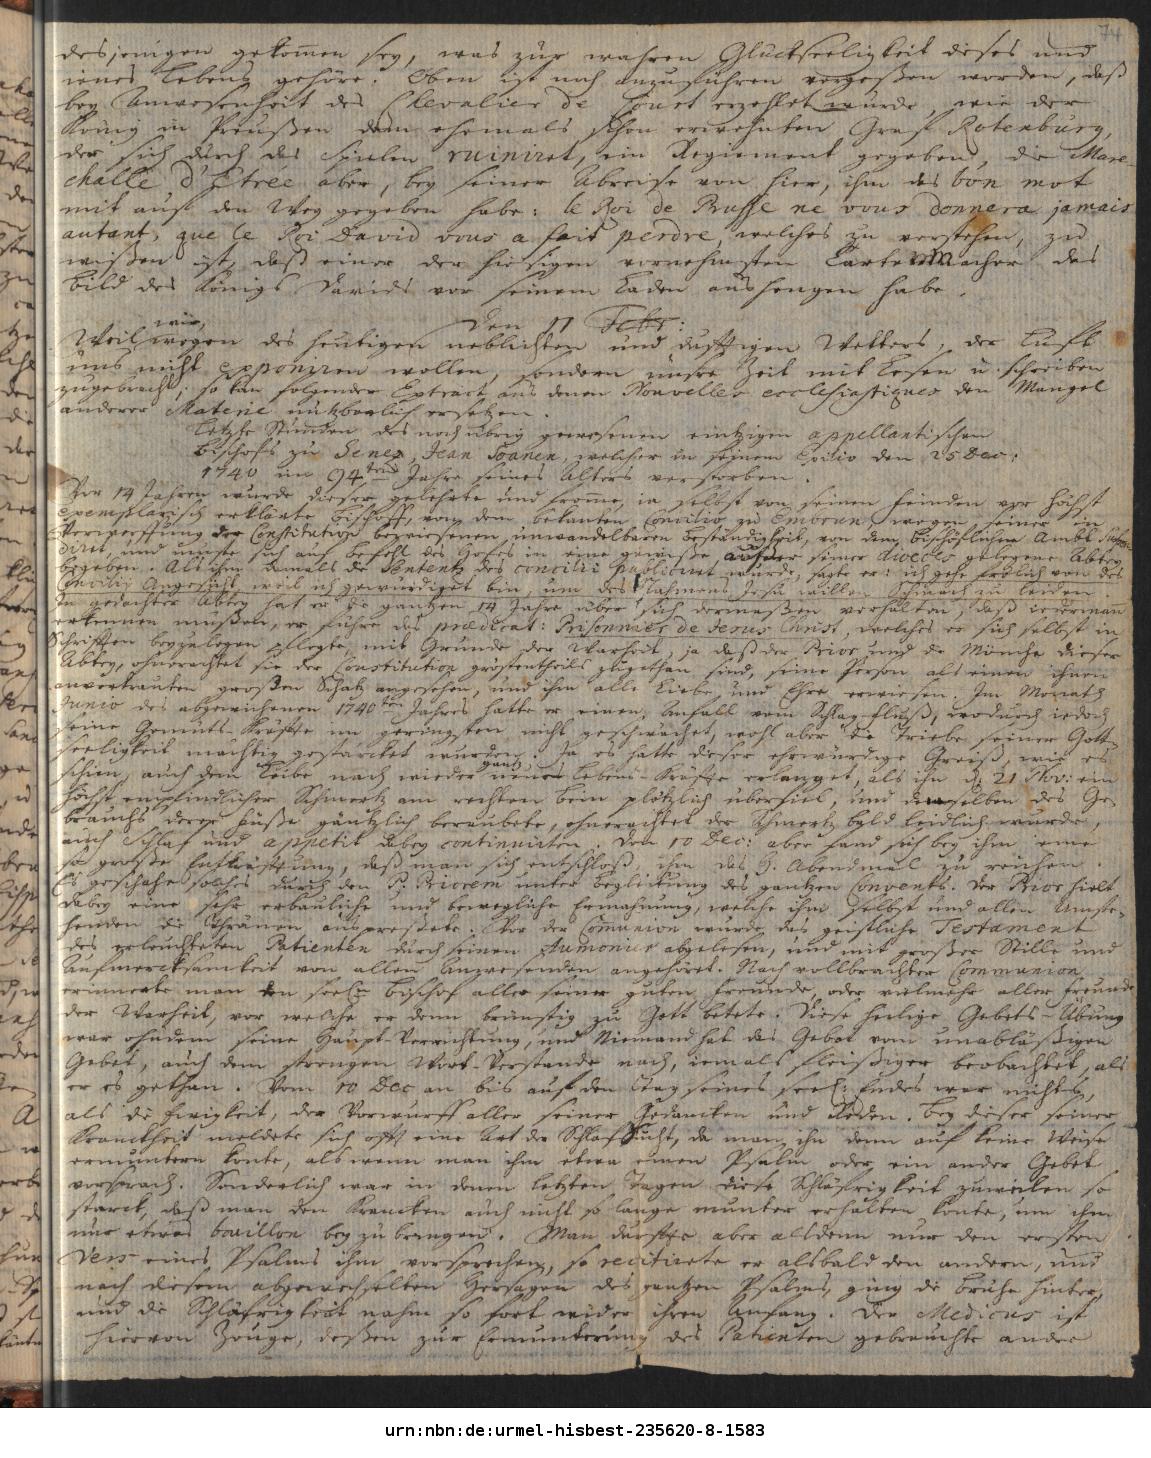 74
desjenigen gekom̃en sey, was zur wahren Glückseeligkeit dieses und
jenes Lebens gehöre. Oben ist noch anzuführen vergeßen worden, daß
bey Anwesenheit des Chevalier de erzehlet wurde, wie der
König in Preußen dem ehemals schon erwehnten Graf Rotenburg,
der sich durch das Spielen ruiniret, ein Regiement gegeben, die Mare-
challe d'Etrée aber, bey seiner Abreise von hier, ihm das bon mot
mit auf den Weg gegeben habe: le Roi de Prusse ne vous donnera jamais
autant, que le Roi David vous a fait perdre, welches zu verstehen, zu
wißen ist, daß einer der hiesigen vornehmsten Cartenmacher das
Bild des Königs Davids vor seinem Laden aushengen habe.
den 17 Febr:
Weil wir, wegen des heutigen neblichten und dufftigen Wetters, der Lufft
uns nicht exponiren wollen, sondern unsre Zeit mit Lesen u. schreiben
zugebracht; so kan folgender Extract aus denen Nouvelles ecclesiastiques den Mangel
anderer Materie nutzbarlich ersetzen.
Letzte Stunden des noch übrig gewesenen eintzigen appellantischen
Bischofs zu Senez, Jean Soanen, welcher in seinem Exilio den 25 Dec:
1740 im 94sten Jahre seines Alters verstorben.
Vor 14 Jahren wurde dieser gelehrte und from̃e, ja selbst von seinen Feinden vor höchst
exemplarisch erklärte Bischoff, von dem bekanten Concilio zu Embrun, wegen seiner in
Verwerffung der Constitution bewiesenen unwandelbaren Beständigkeit, von dem Bischöflichen Ambt
diret, und muste sich auf Befehl des Hofes in eine gewisse außer seiner dioeces gelegene Abtey
begeben. Als ihm damals die Sententz des concilii publiciret wurde, sagte er: ich gehe frölich von des
Concilii Angesicht, weil ich gewürdiget bin, um des Nahmens Jesu willen Schmach zu leiden.
In gedachter Abtey hat er die gantzen 14 Jahre über sich dermaßen verhalten, daß jederman
erkennen müßen, er führe das praedicat: Prisonnier de Jesus Christ, welches er sich selbst in
Schrifften beyzulegen pflegte, mit Grunde der Warheit, ja daß der Prior und die Mönche dieser
Abtey, ohnerachtet sie der Constitution gröstentheils zugethan sind, seine Person als einen ihnen
anvertrauten großen Schatz angesehen, und ihm alle Liebe und Ehre erwiesen. Im Monath
Junio des abgewichenen 1740ten Jahres hatte er einen Anfall vom Schlag-Fluß, wodurch jedoch
seine Gemüts-Kräffte im geringsten nicht geschwächet, wohl aber die Triebe seiner Gott-
seeligkeit mächtig gestärcket wurden. Ja es hatte dieser ehrwürdige Greiß, wie es
schien, auch dem Leibe nach wieder gantz neue Lebens-Kräffte erlanget, als ihn d. 21 Nov: ein
höchst empfindlicher Schmertz am rechten Bein plötzlich überfiel, und denselben des Ge-
brauchs derer Füße gäntzlich beraubete, ohnerachtet der Schmertz bald leidlich wurde,
auch Schlaf und appetit dabey continuirten. Den 10 Dec: aber fand sich bey ihm eine
so große Entkräfftung, daß man sich entschloß, ihm das H. Abendmal zu reichen.
Es geschahe solches durch den P. Priorem unter Begleitung des gantzen Convents. Der Prior hielt
dabey eine sehr erbauliche und bewegliche Ermahnung, welche ihm selbst und allen Umste-
henden die Thränen auspreßete. Vor der Com̃union wurde das geistliche Testament
des erleuchteten Patienten durch seinen Aumonier abgelesen, und mit großer Stille und
Aufmercksamkeit von allen Anwesenden angehöret. Nach vollbrachter Communion
erinnerte man den seel. Bischof aller seiner guten Freunde, oder vielmehr aller Freunde
der Warheit, vor welche er denn brünstig zu Gott betete. Diese heilige Gebets-Übung
war ohndem seine Haupt-Verrichtung, und Niemand hat das Gebot vom unabläßigen
Gebet, auch dem strengen Wort-Verstande nach, jemals fleißiger beobachtet, als
er es gethan. Vom 10 Dec an bis auf den Tag seines seel. Endes war nichts,
als die Ewigkeit, der Vorwurff aller seiner Gedancken und Reden. Bey dieser seiner
Kranckheit meldete sich offt eine Art der Schlafsucht, da man ihn denn auf keine Weise
ermuntern konte, als wenn man ihm etwa einen Psalm oder ein ander Gebet
vorsprach. Sonderlich war in denen letzten Tagen diese Schläfrigkeit zuweilen so
starck, daß man den Krancken auch nicht so lange munter erhalten konte, um ihm
nur etwas bouillon bey zu bringen. Man durffte aber alsdenn nur den ersten
Vers eines Psalms ihm vorsprechen, so recitirete er alsbald den andern, und
nach diesem abgewechselten Hersagen des gantzen Psalms, ging die Brühe hinter,
und die Schläfrigkeit nahm so fort wider ihren Anfang. Der Medicus ist
hiervon Zeuge, deßen zur Ermunterung des Patienten gebrauchte andre
urn:nbn:de:urmel-hisbest-235620-8-1583